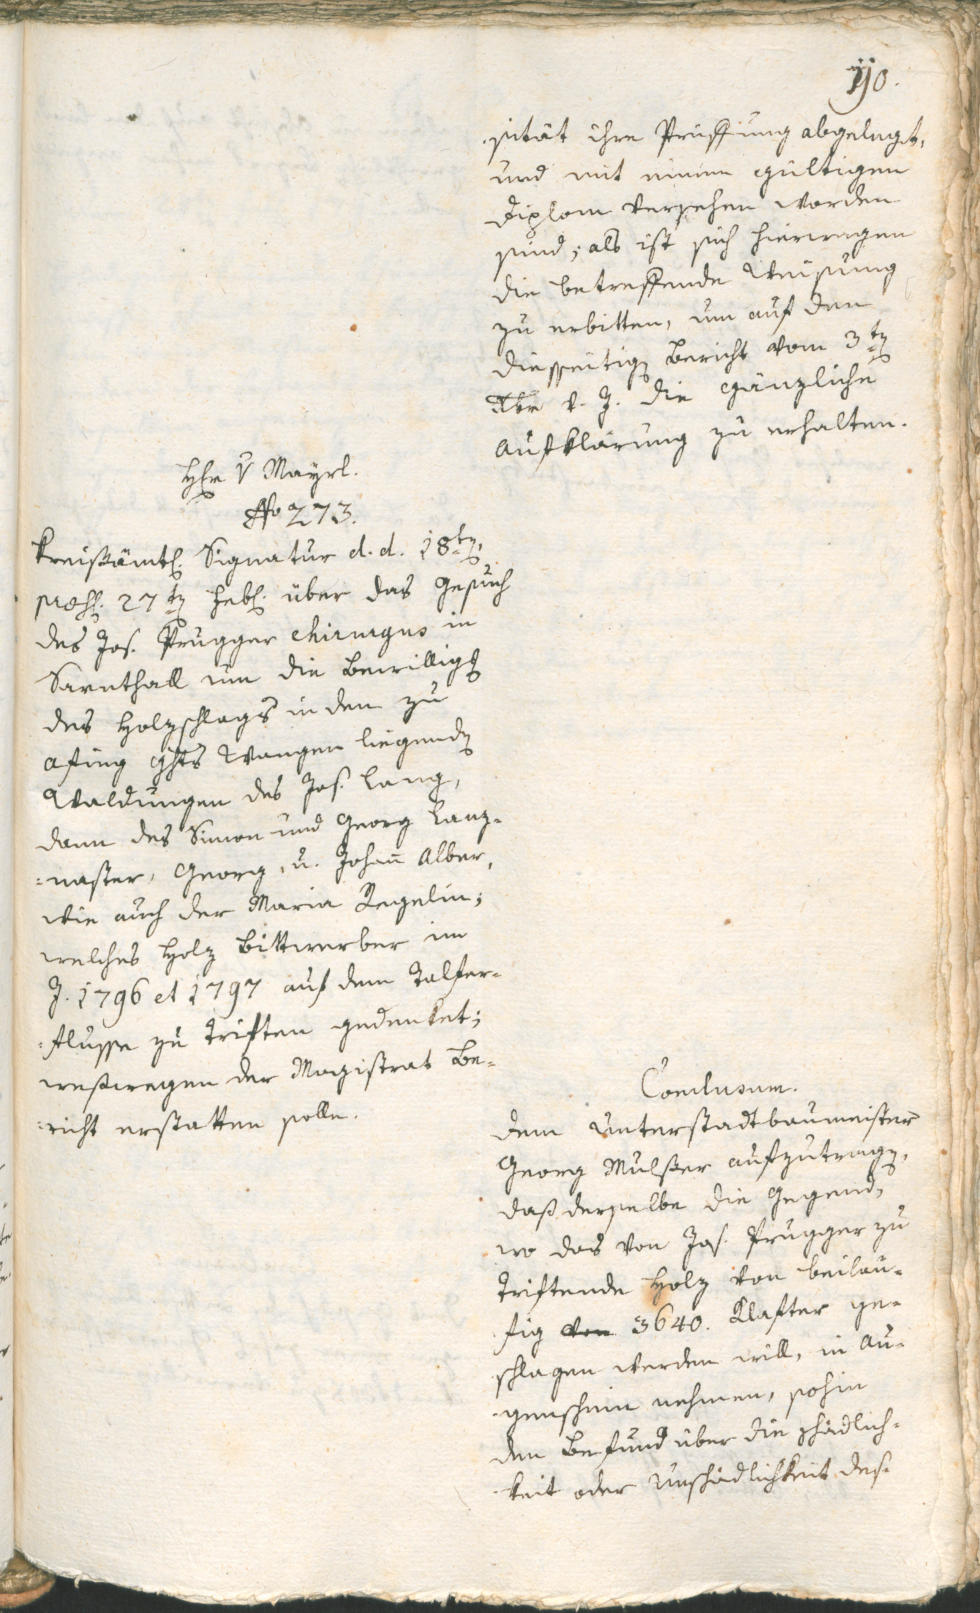 110.
sität ihre Prüffung abgelegt,
und mit einem gültigen
Diplom versehen worden
sind; als ist sich hierwegen
die betreffende Weisung
zu erbitten, um auf den
diesseitig Bericht vom 3tn
v. J. die gänzliche
Aufklärung zu erhalten.
Hr v Mayrl.
No 273.
Kreißämtl. Signatur d. d. 18tn,
præs. 27tn Febr. über das Gesuch
des Jos. Prugger chirurgus in
Sarnthall um die Bewilligg
des Holzschlags in den zu
Afing Ghts Wangen liegendn
Waldungen des Jos. Lang,
dann des Simon und Georg Lanz-
=naster, Georg, u. Johann Alber,
wie auch der Maria Regelin;
welches Holz Bittwerber im
J. 1796 et 1797 auf dem Talfer-
=flusse zu triften gedenket;
weßwegen der Magistrat Be-
=richt erstatten solle.
Conclusum.
Dem Unterstadtbaumeister
Georg Mulser aufzutragn,
daß derselbe die Gegend,
wo das von Jos. Prugger zu
triftende Holz von beiläu-
fig von 3640. Klafter ge-
schlagen werden will, in Au-
genschein nehmen, sohin
den Befund über die Schädlich-
keit oder Unschädlichkeit des-